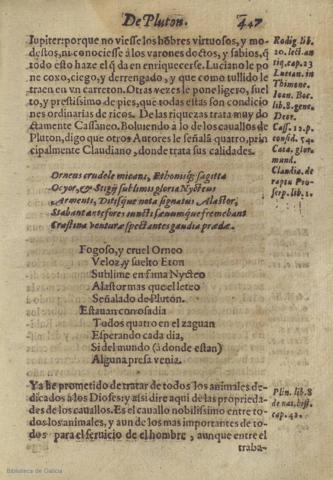 De Pluton. 447
Iupiter: porque no viesse los hõbres virtuosos, y mo-
destos, ni conociesse à los varones doctos, y sabios, q̃
todo esto haze el q̃ da en enriquecerse. Luciano le po
ne coxo, ciego, y derrengado, y que como tullido le
traen en vn carreton. Otras vezes le pone ligero, suel
to, y prestissimo de pies, que todas estas son condicio
nes ordinarias de ricos. De las riquezas trata muy do
ctamente Cassaneo. Boluiendo à lo de los cauallos de
Pluton, digo que otros Autores le señalã quatro, prin
cipalmente Claudiano, donde trata sus calidades.
Rodig. lib.
20. lect. an
tiq. cap. 23
Lucian. in
Thimone.
Ioan. Boc.
lib. 8. gene.
Deor.
Cass. 12. p.
consid. 54.
Cata. glor.
mund.
Claudia. de
raptu Pro-
serp. lib. 1.
Orneus crudele micans, Ethonisq; sagitta
Ocyor, & Stigij sublimis gloria Nycteus
Armenti, Ditisque nota signatus Alastor,
Stabant ante fores iuncti sæuumque fremebant
Crastina venturæ spectantes gaudia prædæ.
Fogoso, y cruel Orneo
Veloz, y suelto Eton
Sublime en fama Nycteo
Alastor mas que el leteo
Señalado de Plutón.
Estauan con osadia
Todos quatro en el zaguan
Esperando cada dia,
Si del mundo (à donde estan)
Alguna presa venia.
Ya he prometido de tratar de todos los animales de-
dicados à los Dioses: y assi dire aqui de las proprieda-
des de los cauallos. Es el cauallo nobilissimo entre to-
dos los animales, y aun de los mas importantes de to-
dos para el seruicio de el hombre, aunque entre el
traba-
Plin. lib. 8
de nat. hist.
cap. 42.
Biblioteca de Galicia